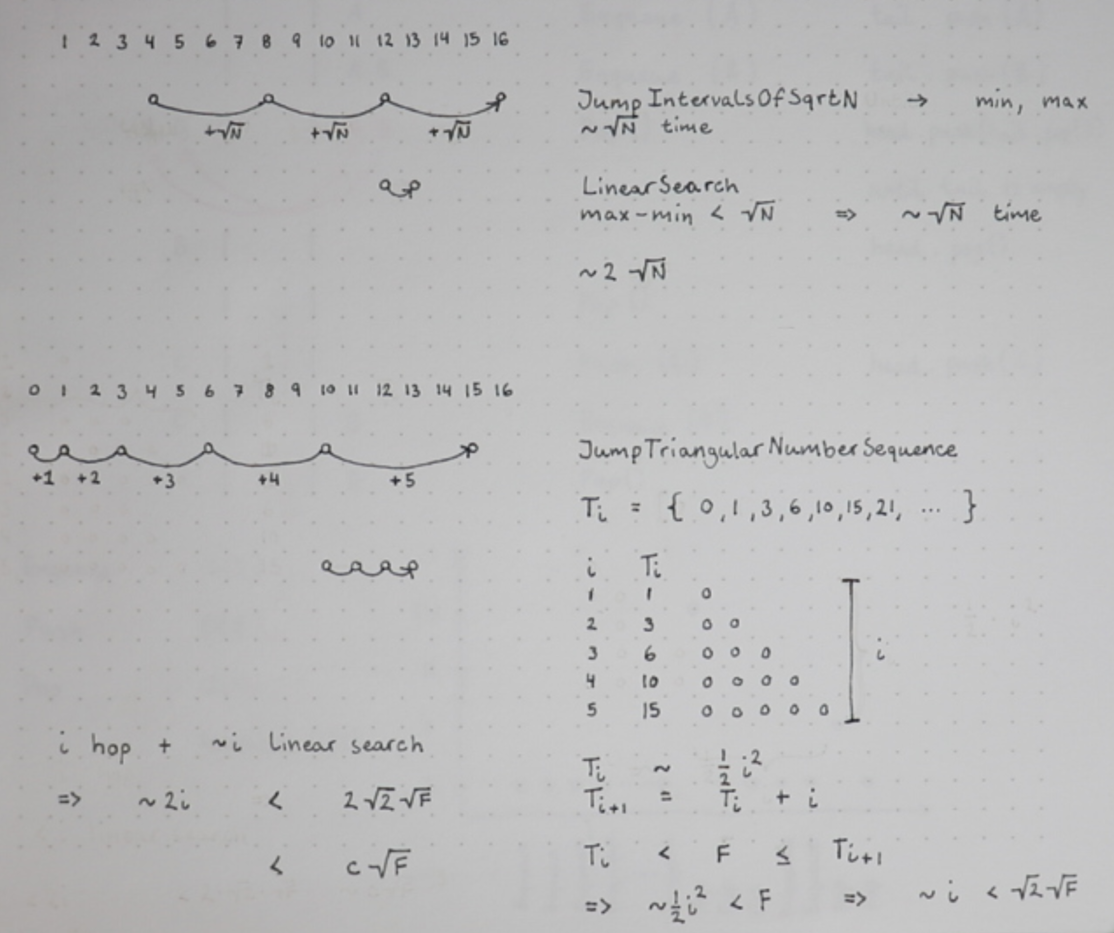 1 2 3 4 5 6 7 8 9 10 11 12 13 14 15 16
+√N +√N +√N
JumpIntervalsOfSqrtN → min, max
~√N time
LinearSearch
max-min < √N => ~√N time
~2 √N
0 1 2 3 4 5 6 7 8 9 10 11 12 13 14 15 16
+1 +2 +3 +4 +5
JumpTriangularNumberSequence
Ti = { 0, 1, 3, 6, 10, 15, 21, ... }
i Ti
1 1
2 3
3 6
4 10
5 15
i
i hop + ~i linear search
=> ~2i < 2√2√F
< c√F
Ti ~ 1/2 i²
Ti+1 = Ti + i
Ti < F ≤ Ti+1
=> ~1/2 i² < F => ~i < √2√F